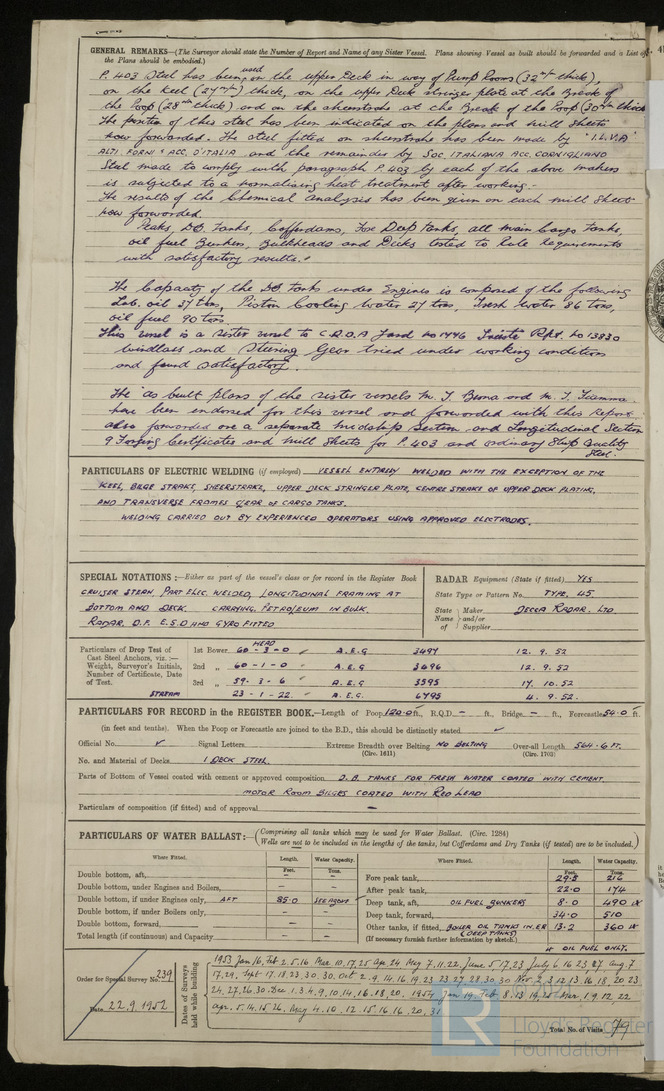 GENERAL REMARKS—(The Surveyor should state the Number of Report and Name of any Sister Vessel. Plans showing Vessel as built should be forwarded and is List of
the Plans should be embodied.)
used
P. 403 Steel has been on the upper Deck in way of Pump Rooms (32 m/m thick),
on the keel (27 m/m) thick, on the upper Deck stringer plate at the Break of
the Poop (28 m/m thick) and on the sheerstrake at the Break of the Poop (30 m/m thick
The position of this steel has been indicated on the plans and mill sheets
now forwarded. The steel fitted on sheerstrake has been made by "I.L.V.A"
ALTI FORNI & ACC. D'ITALIA and the remainder by SOC. ITALIANA ACC. CORNIGLIANO
Steel made to comply with paragraph P. 403 by each of the above makers
is subjected to a normalising heat treatment after working.-
The results of the Chemical analysis has been given on each mill sheet
now forwarded.
Peaks, DB Tanks, Cofferdams, Fore Deep Tanks, all main Cargo Tanks,
oil fuel Bunkers, Bulkheads and Decks tested to Rule Requirements
with satisfactory results.
The Capacity of the DB tanks under Engines is composed of the following
Lub. oil 37 tons, Piston Cooling water 27 tons, Fresh water 86 tons,
oil fuel 90 tons.
This vessel is a sister vessel to C.R.D.A Yard No 1446 Trieste Rpt. No 13830
Windlass and Steering Gear tried under working condition
and found satisfactory.
The "as built plans of the sister vessels M. T. Berna and M. T. Fiamma
have been endorsed for this vessel and forwarded with this Report
also forwarded are a separate Midship Section and Longitudinal Section
9 Forging Certificates and mill sheets for P. 403 and ordinary Ship Quality
Steel.
PARTICULARS OF ELECTRIC WELDING (if employed) VESSEL ENTIRELY WELDED WITH THE EXCEPTION OF THE
KEEL, BILGE STRAKE, SHEERSTRAKE, UPPER DECK STRINGER PLATE, CENTRE STRAKE OF UPPER DECK PLATING,
AND TRANSVERSE FRAMES CLEAR OF CARGO TANKS.
WELDING CARRIED OUT BY EXPERIENCED OPERATORS USING APPROVED ELECTRODES.
SPECIAL NOTATIONS:—Either as part of the vessel's class or for record in the Register Book
CRUISER STERN, PART ELEC. WELDED, LONGITUDINAL FRAMING AT
BOTTOM AND DECK. CARRYING PETROLEUM IN BULK.
RADAR. D.F. E.S.D AND GYRO FITTED
RADAR Equipment (State if fitted) YES
State Type or Pattern No. TYPE. 45
State Name of Maker and/or Supplier DECCA RADAR. LTD
Particulars of Drop Test of Cast Steel Anchors, viz.:— Weight, Surveyor's Initials, Number of Certificate, Date of Test.
HEAD
1st Bower 60-3-0 A.E.G 3497 12. 9. 52
2nd " 60-1-0 A.E.G 3696 12. 9. 52
3rd " 59. 3-6 A.E.G 3595 17. 10. 52
STREAM 23-1-22. A.E.G. 6795 4. 9. 52.
PARTICULARS FOR RECORD in the REGISTER BOOK.—Length of Poop 120.0 ft., R.Q.D. — ft., Bridge — ft., Forecastle 54.0 ft.
(in feet and tenths). When the Poop or Forecastle are joined to the B.D., this should be distinctly stated
Official No. Signal Letters Extreme Breadth over Belting (Circ. 1611) NO BELTING Over-all Length (Circ. 1703) 564.6 FT.
No. and Material of Decks 1 DECK STEEL.
Parts of Bottom of Vessel coated with cement or approved composition D.B. TANKS FOR FRESH WATER COATED WITH CEMENT.
MOTOR ROOM BILGES COATED WITH RED LEAD
Particulars of composition (if fitted) and of approval —
PARTICULARS OF WATER BALLAST:— (Comprising all tanks which may be used for Water Ballast. (Circ. 1284)
Wells are not to be included in the lengths of the tanks, but Cofferdams and Dry Tanks (if tested) are to be included.)
Where Fitted. Length. Feet. Water Capacity. Tons.
Double bottom, aft, — —
Double bottom, under Engines and Boilers, — —
Double bottom, if under Engines only, AFT 85.0 SEE ABOVE
Double bottom, if under Boilers only, — —
Double bottom, forward, — —
Total length (if continuous) and Capacity — —
Where Fitted. Length. Feet. Water Capacity. Tons.
Fore peak tank, 29.8 216
After peak tank, 22.0 174
Deep tank, aft, OIL FUEL BUNKERS 8.0 490
Deep tank, forward, 34.0 510
Other tanks, if fitted, BOILER OIL TANKS IN.ER 13.2 360
(DEEP TANKS)
(If necessary furnish further information by sketch.)
OIL FUEL ONLY.
Order for Special Survey No. 239
Date 22.9.1952
Dates of Surveys held while building
1953 Jan 16, Feb 2.5.16 Mar. 10.17,25 Apr. 24 May 7.11.22. June 5.17,23 July 6 16 23 27 Aug. 7
17,29. Sept 17.18 23.30.30. Oct 2.9.14.16.19.23 23.27.28.30.30 Nov. 2.3.12.13 16.18.20 23
24.27.26.30. Dec. 1.3.4.9.10.14.16.18.20. 1954 Jan 19. Feb. 8.13.19,25 Mar. 1.9.12.22
Apr. 5.14.15.26. May 4.10.12.15.16.16.20.31
Total No. of Visits 79
LR
Lloyd's Register
Foundation